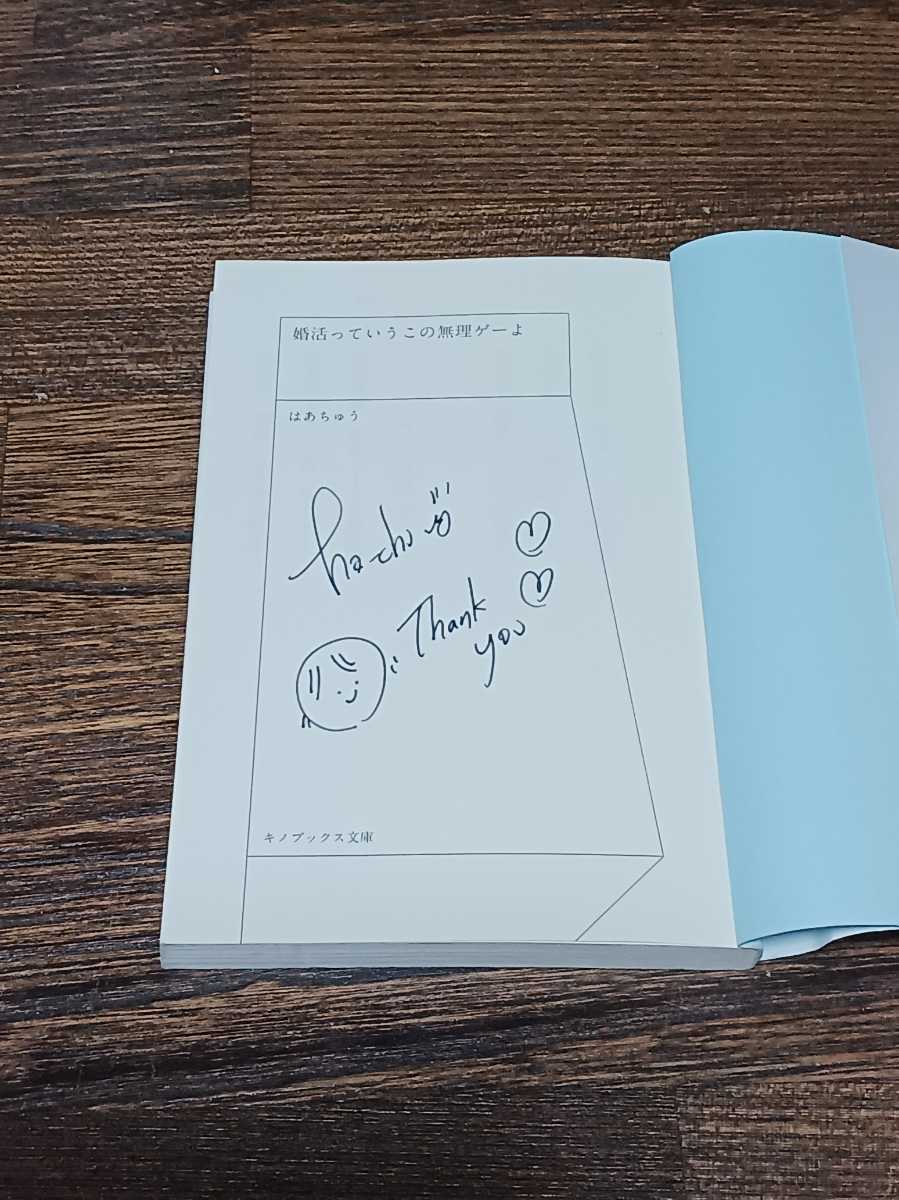 婚活っていうこの無理ゲーよ
はあちゅう
ha-chu
Thank
you
キノブックス文庫